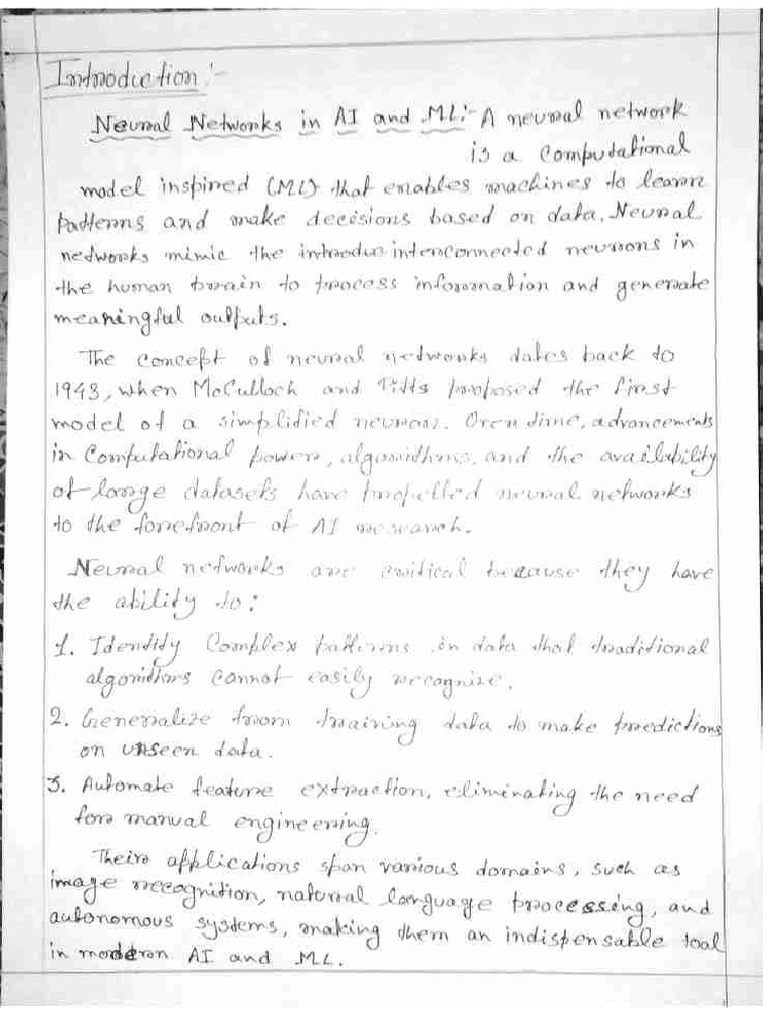 Introduction :-
Neural Networks in AI and ML:- A neural network
is a computational
model inspired (ML) that enables machines to learn
patterns and make decisions based on data. Neural
networks mimic the interconnected neurons in
the human brain to process information and generate
meaningful outputs.
The concept of neural networks dates back to
1943, when McCulloch and Pitts proposed the first
model of a simplified neuron. Over time, advancements
in computational power, algorithms, and the availability
of large datasets have propelled neural networks
to the forefront of AI research.
Neural networks are critical because they have
the ability to:
1. Identify complex patterns in data that traditional
algorithms cannot easily recognize.
2. Generalize from training data to make predictions
on unseen data.
3. Automate feature extraction, eliminating the need
for manual engineering.
Their applications span various domains, such as
image recognition, natural language processing, and
autonomous systems, making them an indispensable tool
in modern AI and ML.